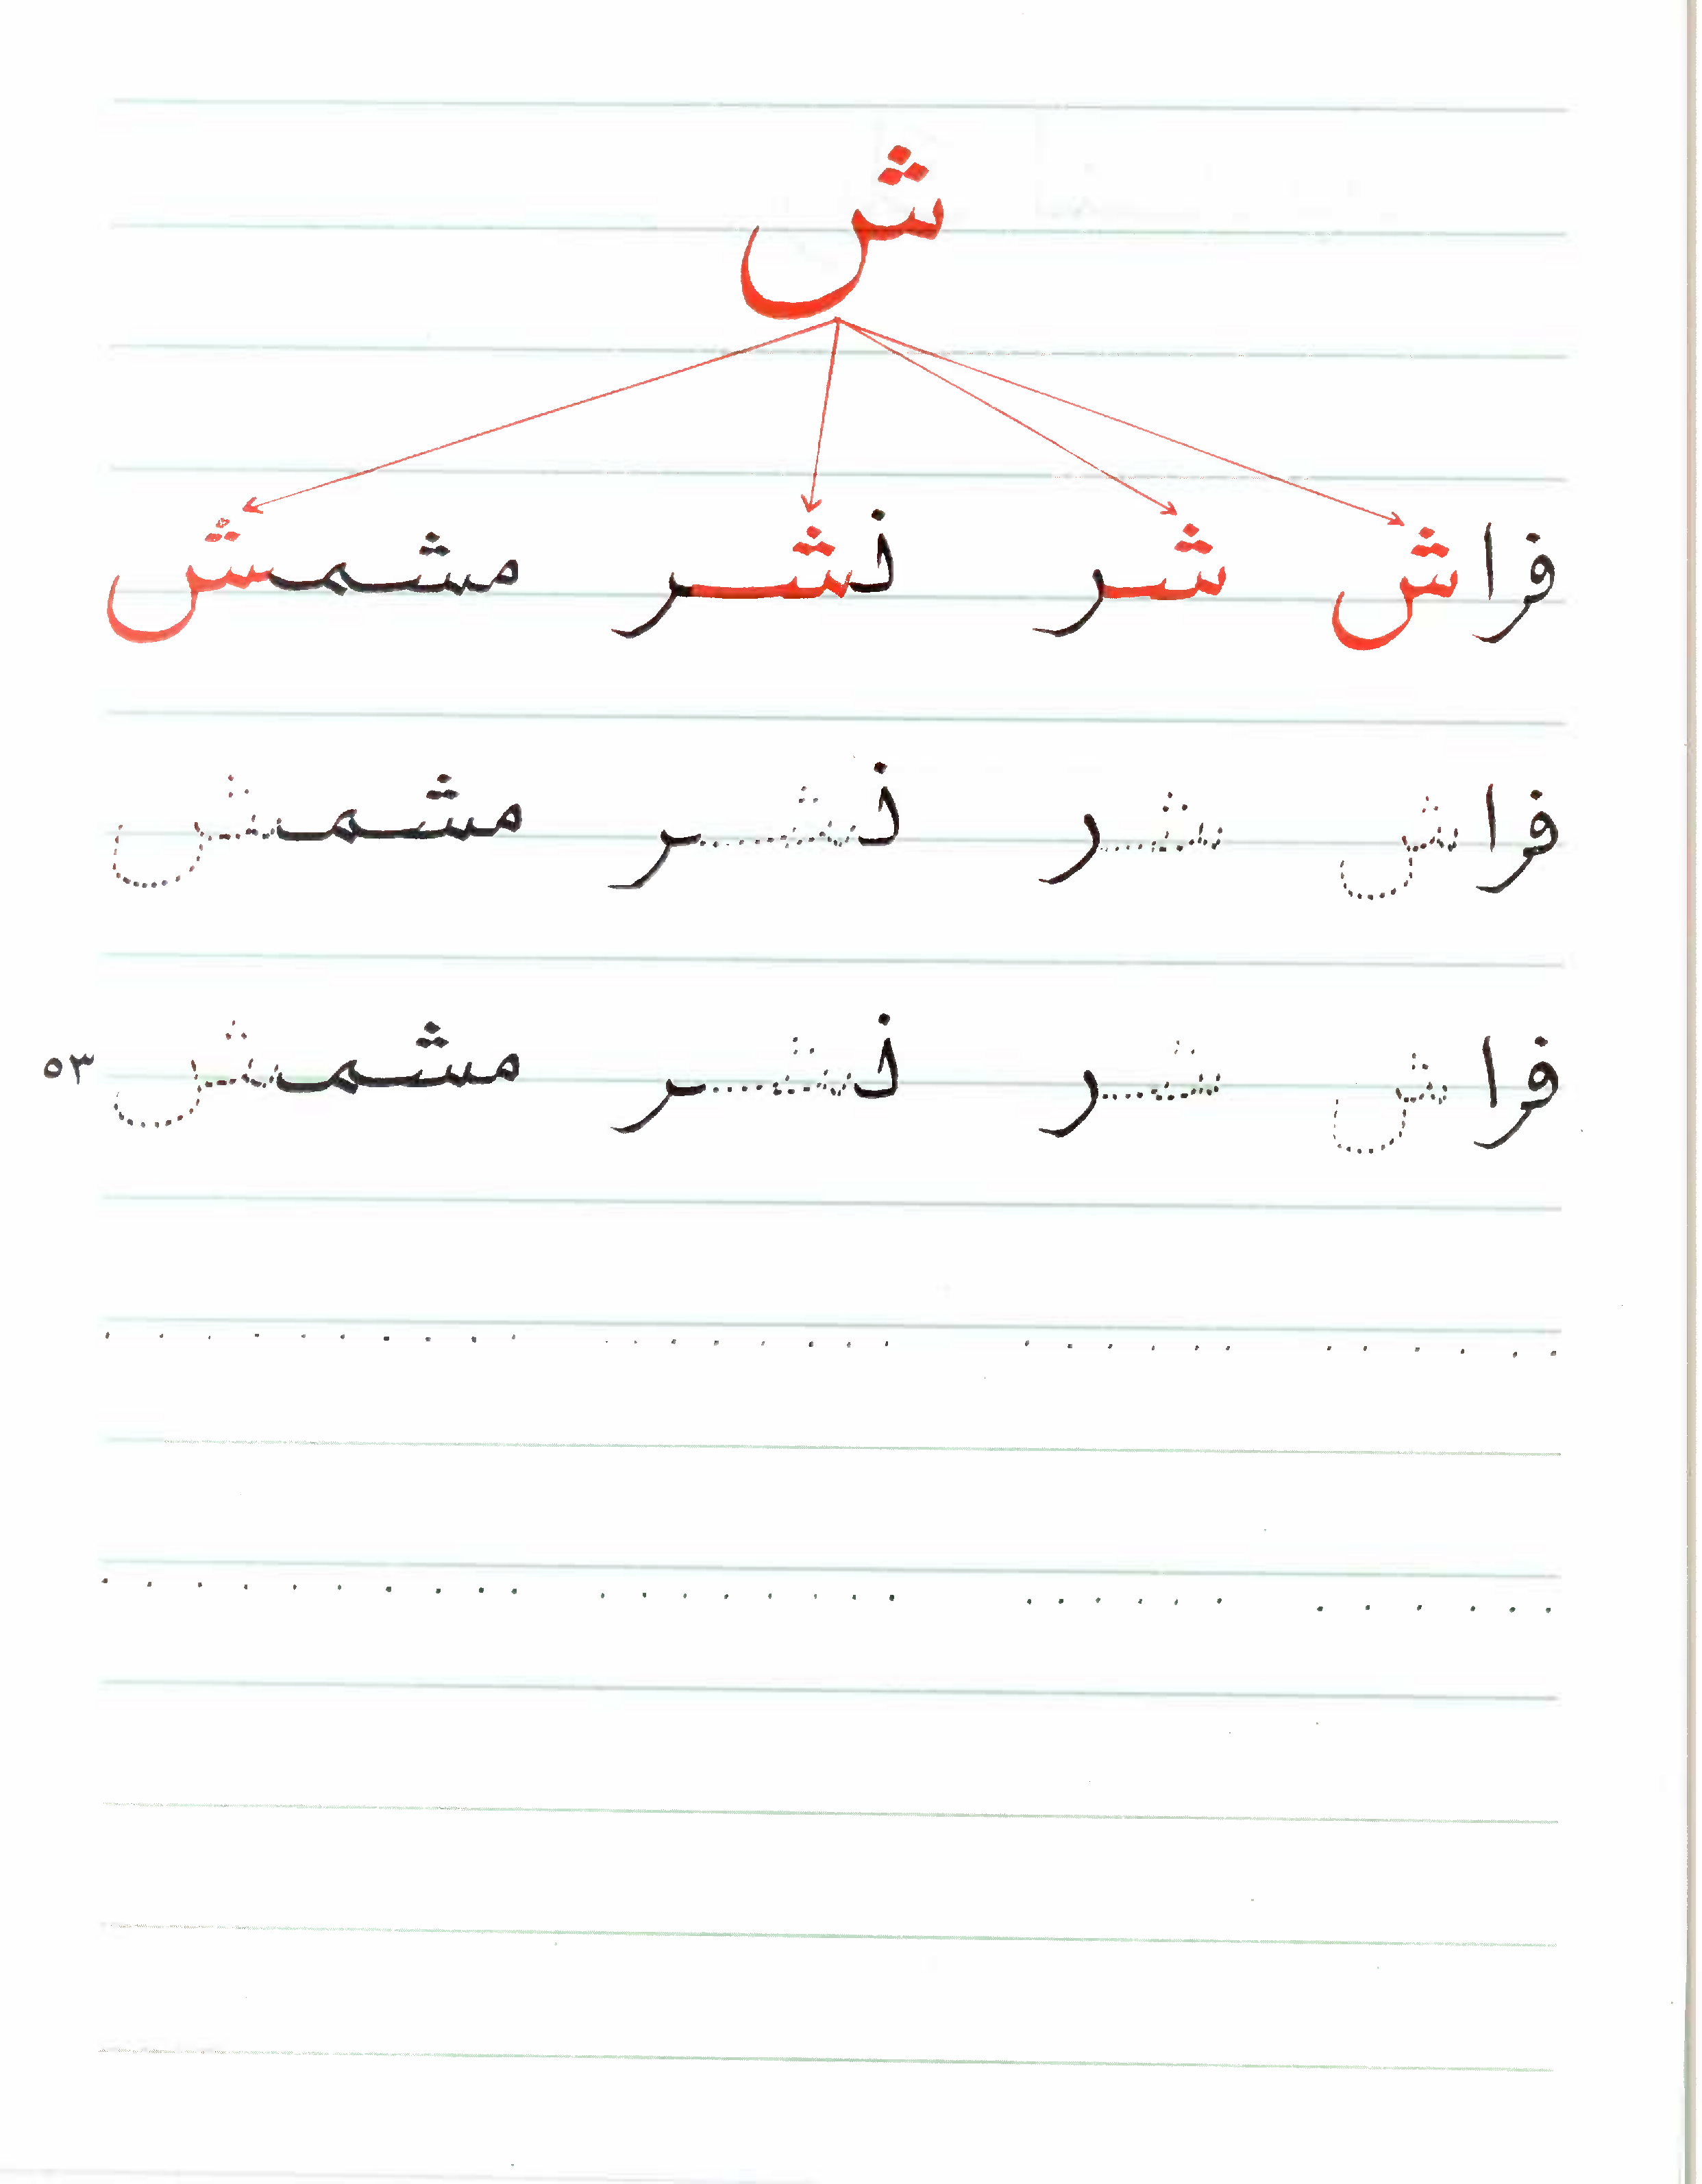 ش
فراش شر نشر مشمش
فراش شر نشر مشمش
فراش شر نشر مشمش
٥٣